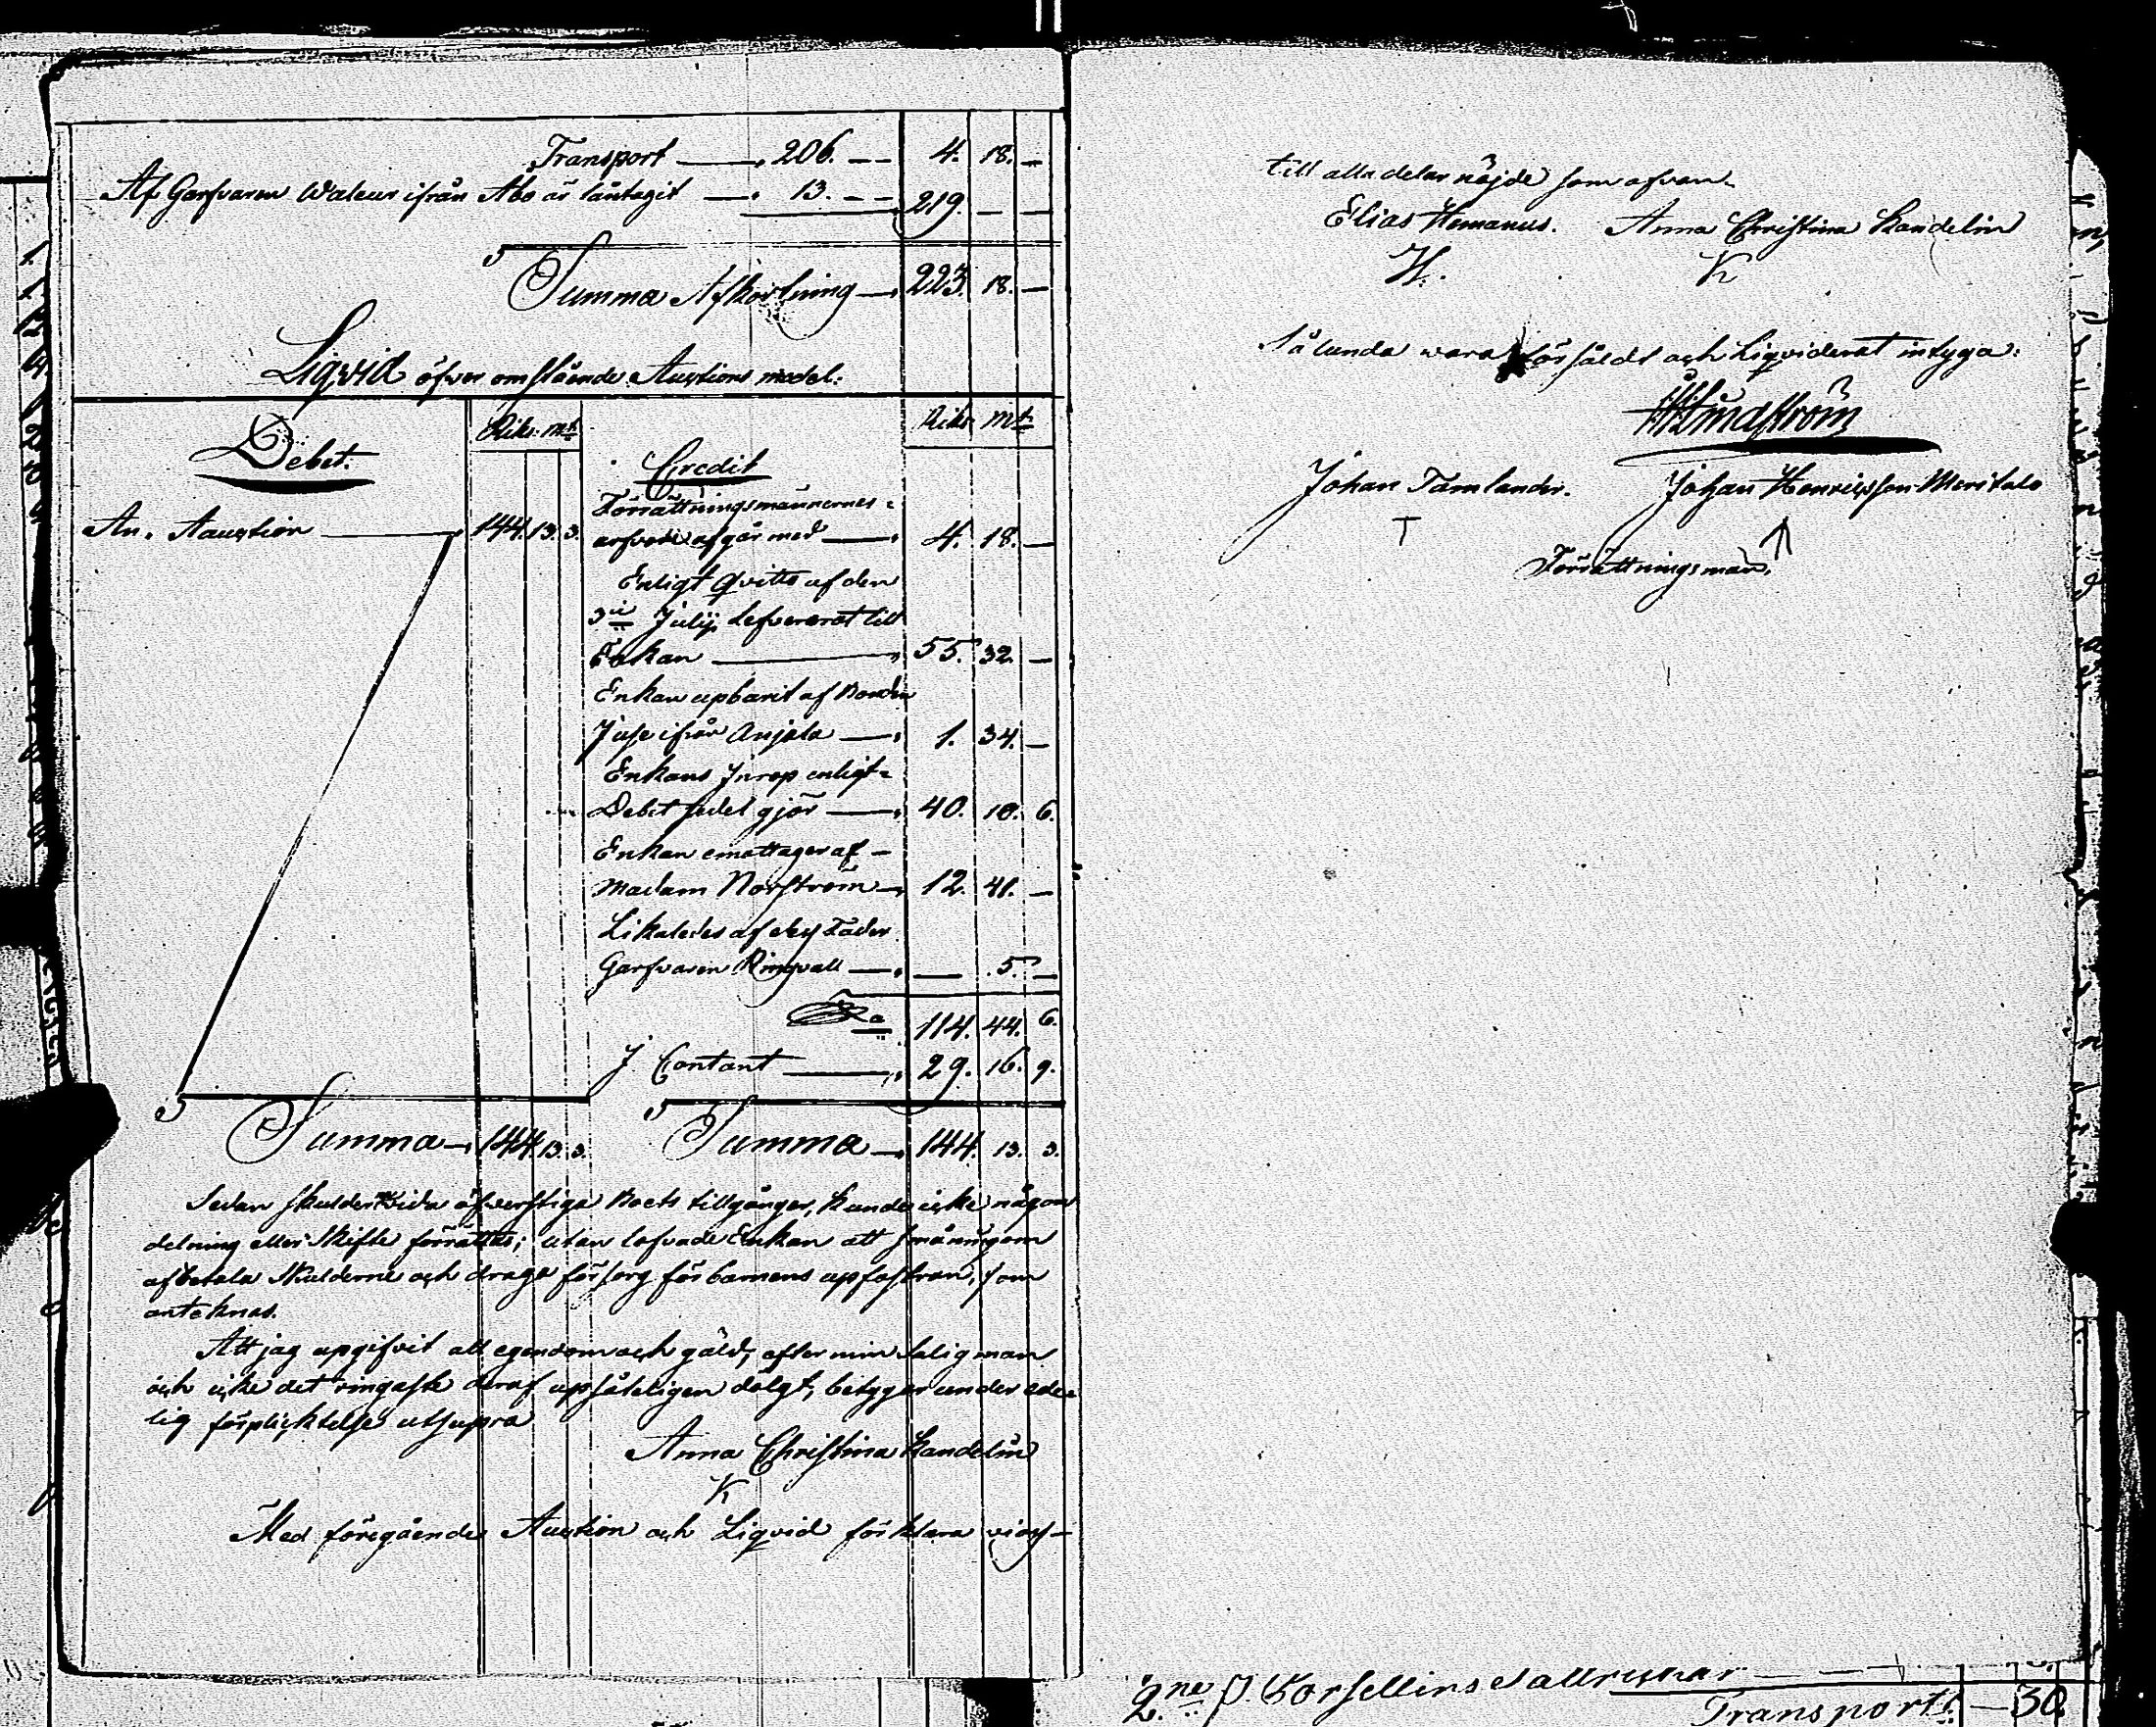 Transport — 206. — — 4. 18. —
Af Garfvaren Waleur ifrån Åbo är låntagit — 13. — — 219. — —
Summa Afkortning — 223. 18. —
Liqvid öfver omstående Auctions medel:
Debet. Riks: mt Credit Riks mt
Förrättningsmännernes
An. Aauction — 144. 13. 3. arfvode afgår med — 4. 18. —
Enligt qvitto af den
3ii Julii Lefvererat till
Enkan — 55. 32. —
Enkan upbarit af Bonden
Juse ifrån Anjala — 1. 34. —
Enkans Inrop enligt
Debet sedel gjör — 40. 10. 6.
Enkan emottager af —
Madam Norström — 12. 41. —
Likaledes af dess Fader
Garfvaren Ringvall — — 5. —
114. 44. 6.
J Contant — 29. 16. 9.
Summa — 144. 13. 3. Summa — 144. 13. 3.
Sedan skulderne vida öfverstiga Boets tillgångar, kunde icke någon
delning eller Skifte förrättas; utan lofvade Enkan att småningom
afbetala Skulderne och draga försorg för barnens upfostran, som
anteknas.
Att jag upgifvit all egendom och gäld, efter min Salig man
och icke det ringaste deraf upsåteligen dölgt, betygar under ede-
lig förplicktelse utsupra
Anna Christina Kandelin
K
Medföregående Auction och Liqvid förklara vi oss —
till alla delar nöjde som ofvan.
Elias Homanus. Anna Christina Kandelin
H. K
Sålunda vara försåldt och Liqviderat intyga:
Lindström
Johan Tamlander. Johan Henricsson Meritalo
T
Förrättningsmän.
2.ne
Transport — 30